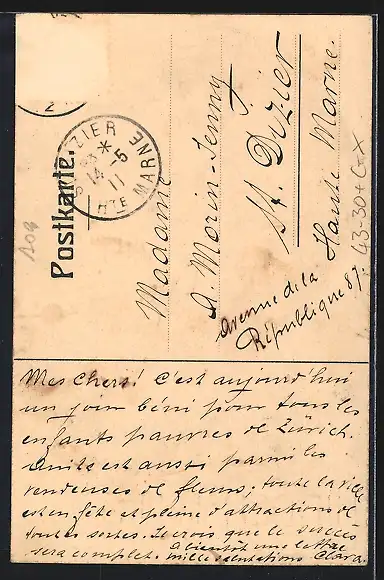 Postkarte.
ST DIZIER
23 *
14 - 5
11
HTE MARNE
Madame
A. Morin-Jenny
St. Dizier
Haute Marne.
Avenue de la
République 87.
43-30+C-X
Mes Chers! C'est aujourd'hui
un jour béni pour tous les
enfants pauvres de Zürich.
est aussi parmi les
vendeuses de fleurs, toute la ville
est en fête et pleine d'attractions de
toutes sortes. Je crois que le succès
sera complet. A bientôt une lettre
mille salutations Clara.